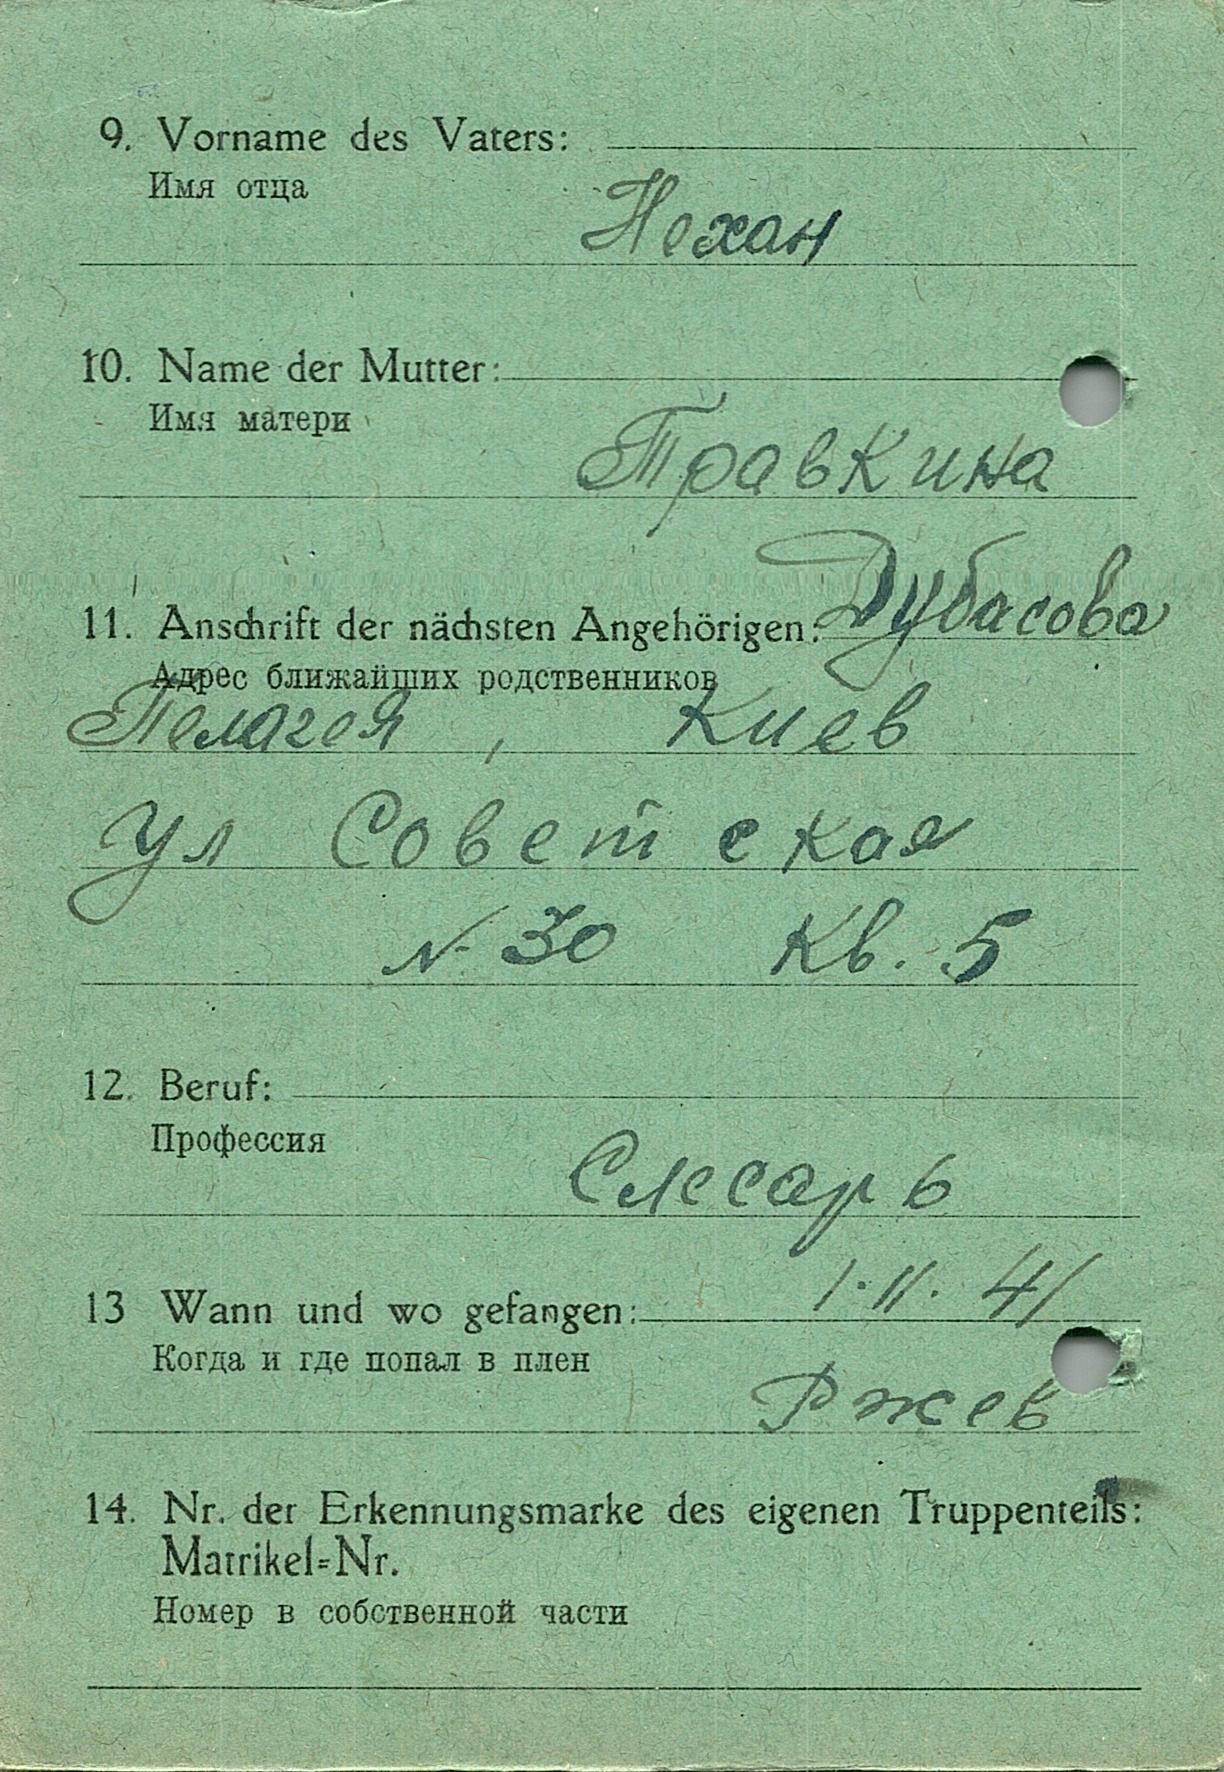 9. Vorname des Vaters:
Имя отца
Нехан
10. Name der Mutter:
Имя матери
Травкина
11. Anschrift der nächsten Angehörigen: Дубасова
Адрес ближайших родственников
Пелагея, Киев
ул Советская
N 30 Кв. 5
12. Beruf:
Профессия
Слесарь
13 Wann und wo gefangen: 1.11.41
Когда и где попал в плен
Ржев
14. Nr. der Erkennungsmarke des eigenen Truppenteils:
Matrikel=Nr.
Номер в собственной части